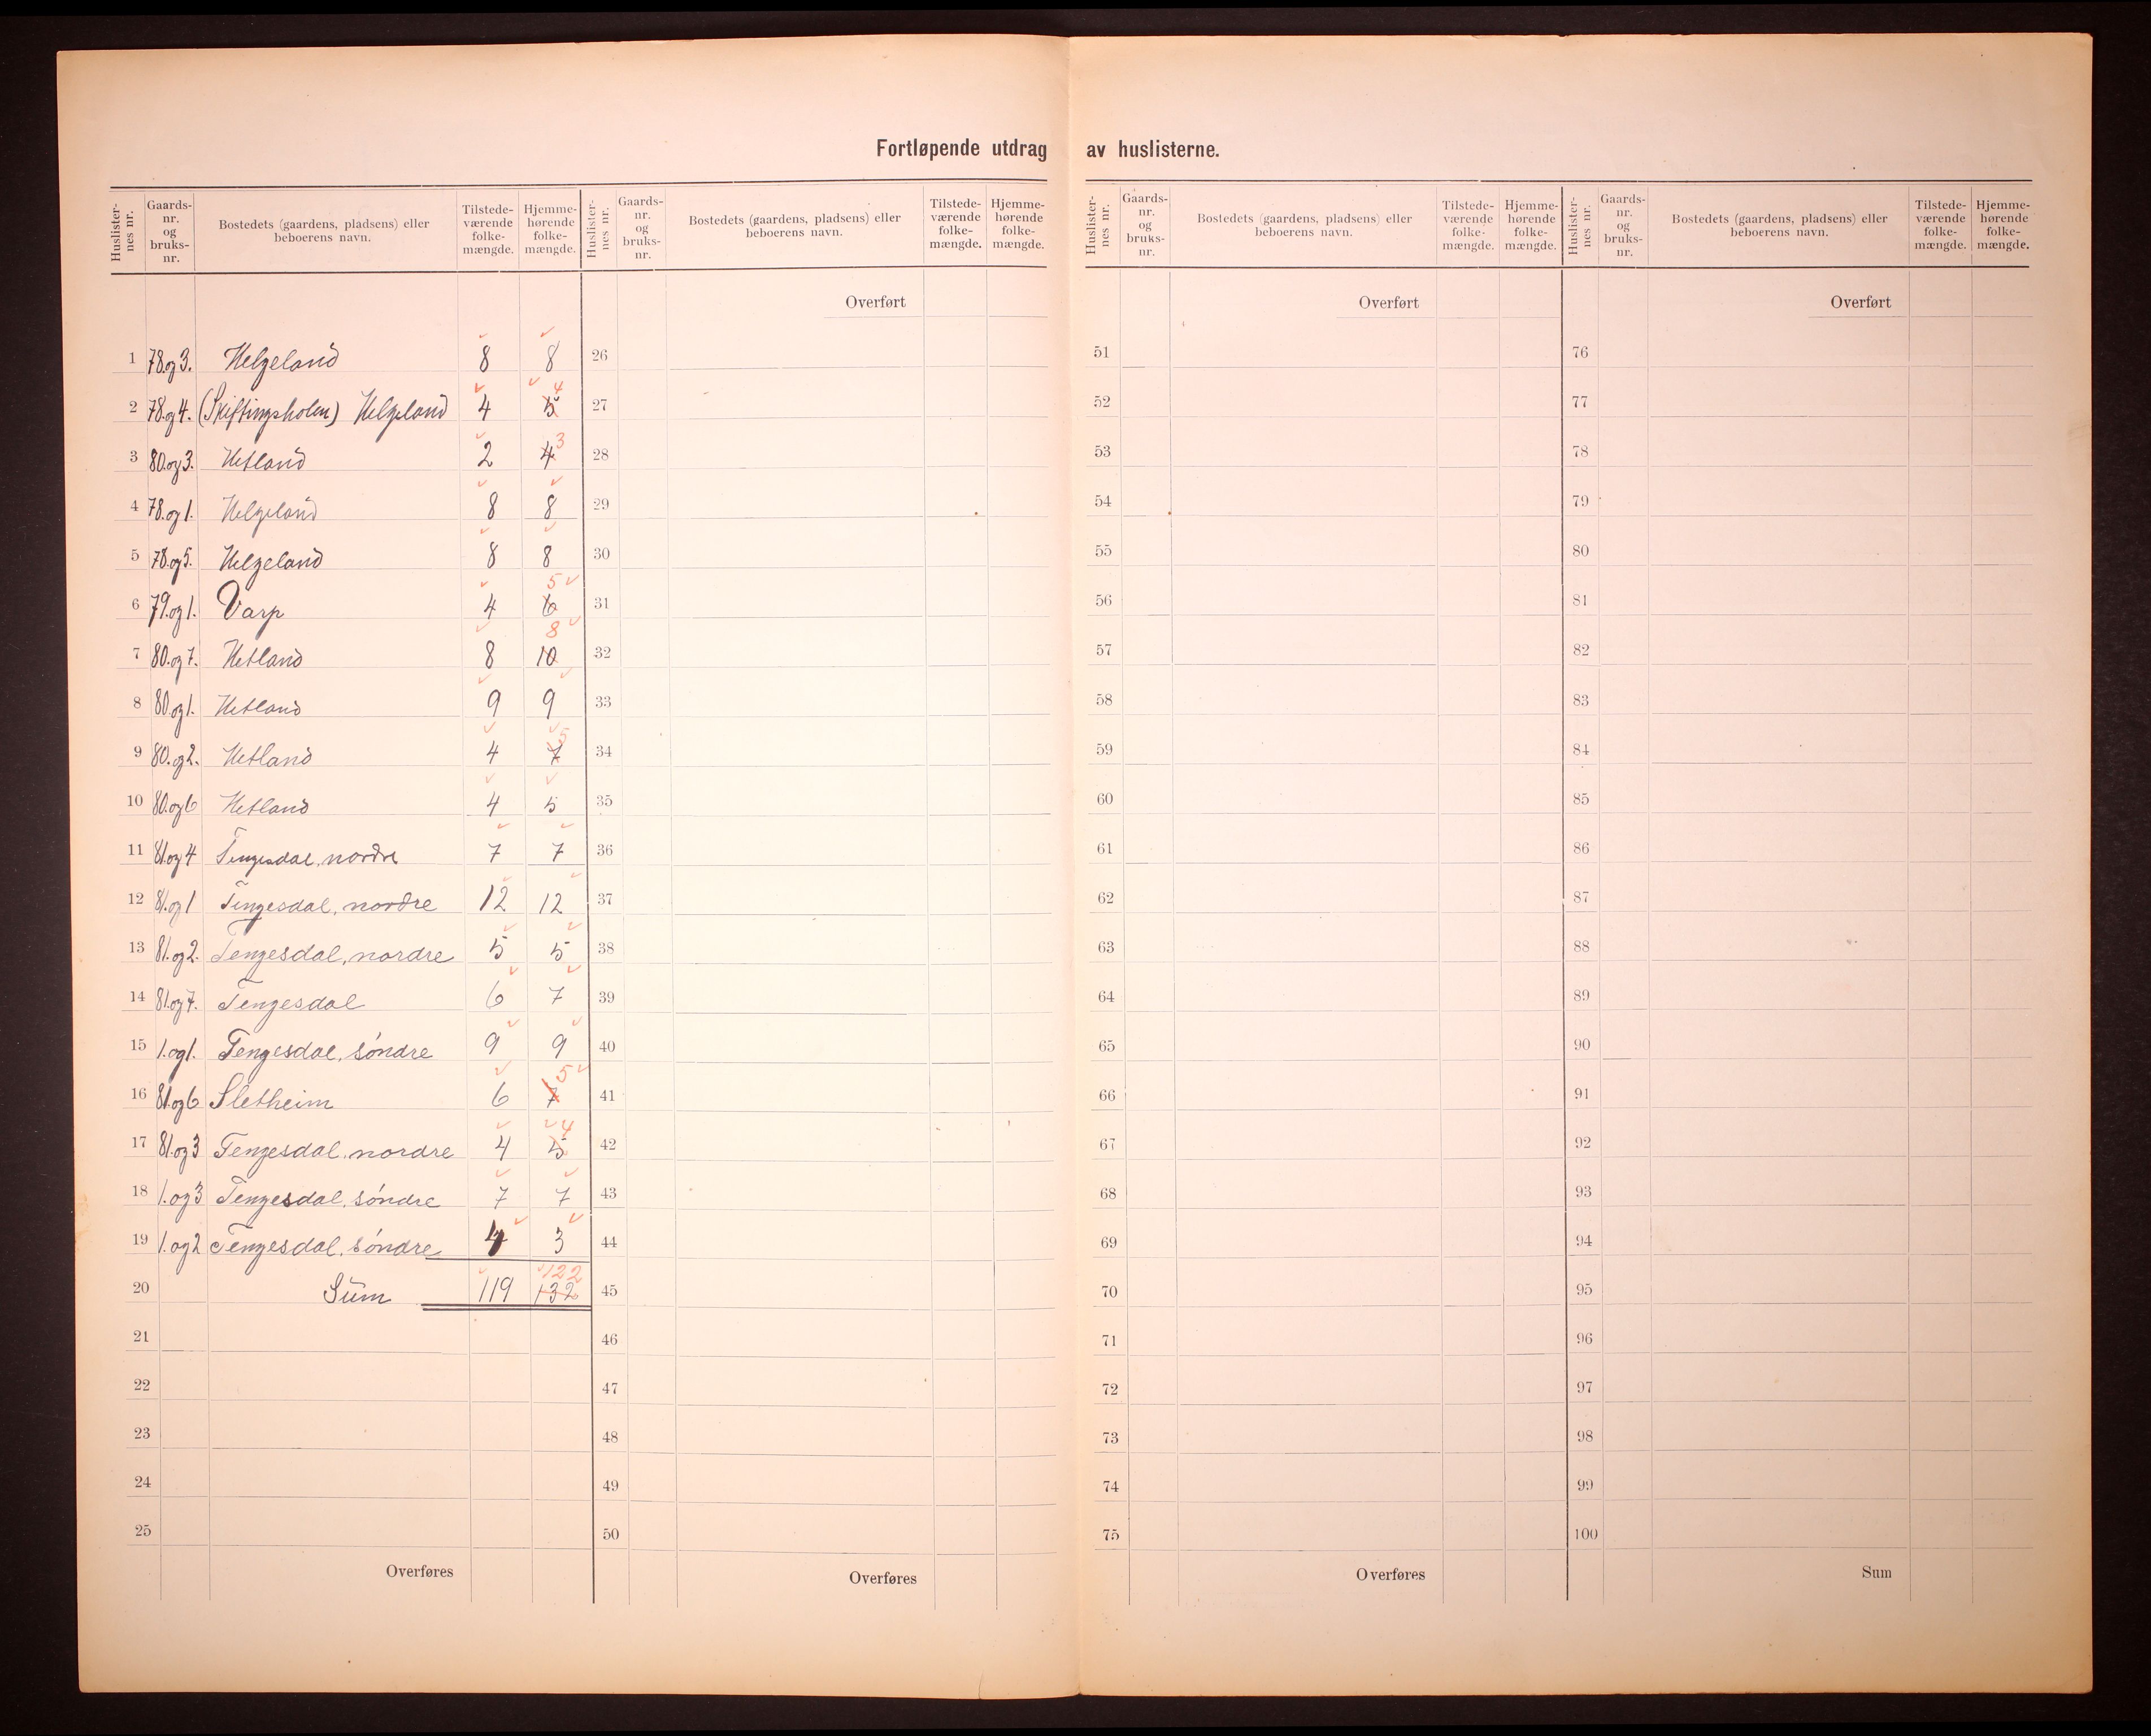 Fortløpende utdrag av huslisterne.
Huslister-nes nr. Gaards-nr. og bruks-nr. Bostedets (gaardens, pladsens) eller beboerens navn. Tilstede-værende folke-mængde. Hjemme-hørende folke-mængde. Huslister-nes nr. Gaards-nr. og bruks-nr. Bostedets (gaardens, pladsens) eller beboerens navn. Tilstede-værende folke-mængde. Hjemme-hørende folke-mængde. Huslister-nes nr. Gaards-nr. og bruks-nr. Bostedets (gaardens, pladsens) eller beboerens navn. Tilstede-værende folke-mængde. Hjemme-hørende folke-mængde. Huslister-nes nr. Gaards-nr. og bruks-nr. Bostedets (gaardens, pladsens) eller beboerens navn. Tilstede-værende folke-mængde. Hjemme-hørende folke-mængde.
Overført Overført Overført
1 78.og3. Helgeland 8 8 26 51 76
2 78.og4. (Skiftingsholen) Helgeland 4 5 4 27 52 77
3 80.og3. Hetland 2 4 3 28 53 78
4 78.og1. Helgeland 8 8 29 54 79
5 78.og5. Helgeland 8 8 30 55 80
6 79.og1. Varp 4 6 5 31 56 81
7 80.og7. Hetland 8 10 8 32 57 82
8 80.og1. Hetland 9 9 33 58 83
9 80.og2. Hetland 4 7 5 34 59 84
10 80.og6 Hetland 4 5 35 60 85
11 81.og4 Tengesdal, nordre 7 7 36 61 86
12 81.og1 Tengesdal, nordre 12 12 37 62 87
13 81.og2. Tengesdal, nordre 5 5 38 63 88
14 81.og7. Tengesdal 6 7 39 64 89
15 1.og1. Tengesdal, søndre 9 9 40 65 90
16 81.og6 Sletheim 6 7 5 41 66 91
17 81.og3 Tengesdal, nordre 4 5 4 42 67 92
18 1.og3 Tengesdal, søndre 7 7 43 68 93
19 1.og2 Tengesdal, søndre 4 3 44 69 94
20 Sum 119 132 122 45 70 95
21 46 71 96
22 47 72 97
23 48 73 98
24 49 74 99
25 50 75 100
Overføres Overføres Overføres Sum